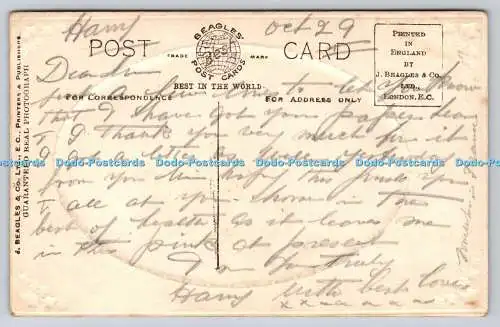 Harry
Oct 29
BEAGLES'
POST CARDS
TRADE MARK
POST CARD
BEST IN THE WORLD
FOR CORRESPONDENCE
FOR ADDRESS ONLY
PRINTED
IN
ENGLAND
BY
J. BEAGLES & CO.
LTD.,
LONDON, E.C.
J. BEAGLES & CO., LTD., LONDON, E.C., PRINTERS & PUBLISHERS.
GUARANTEED REAL PHOTOGRAPH
Dear
Just a few lines to let you know
that I have got your papers dear
I thank you very much for it
I got letter
from you hope this finds you
all at your home in the
best of health as it leaves me
in the pink at present
from Yours Truly
Harry with best love
x x x x x x x
Dodo-Postcards Dodo-Postcards Dodo-Postcards Dodo-Postcards Dodo-Postcards Dodo-Postcards